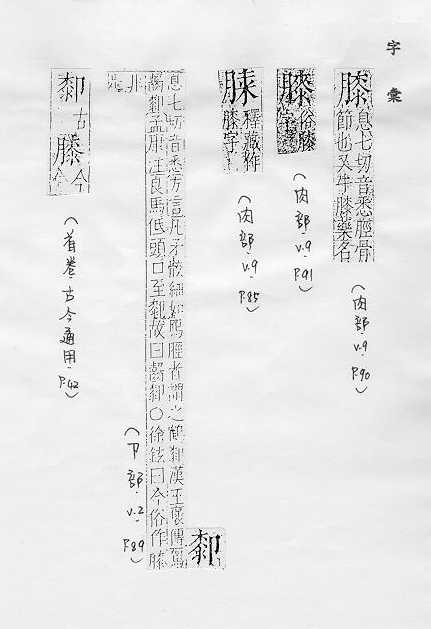 字彙
膝息七切音悉脛骨
節也又牛膝藥名
（肉部．v.9．P.90）
俗膝
字
（肉部．v.9．P.91）
釋藏作
膝字
（肉部．v.9．P.85）
厀
息七切音悉方言凡矛骹細如鴈脛者謂之鶴厀漢王褒傳駕
齧厀孟康注良馬低頭口至厀故曰齧厀○徐鉉曰今俗作膝
非
（卩部．v.2．P.89）
厀古
膝今
（首卷．古今通用．P.42）